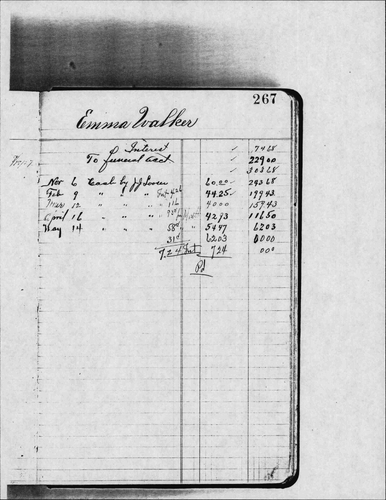 267
Emma Walker
Interest 74 68
To funeral acct 229 00
303 68
Nov 6 Cash by J J 60.00 243 68
Feb 9 " " " Int 4.26 44.25 199 43
Mar 12 " " " " 116 40 00 159 43
April 16 " " " " 42 93 116 50
May 14 58 " " 54 47 62 03
31 62 03 00 00
7.24 Int 7 24 0 00
Pd